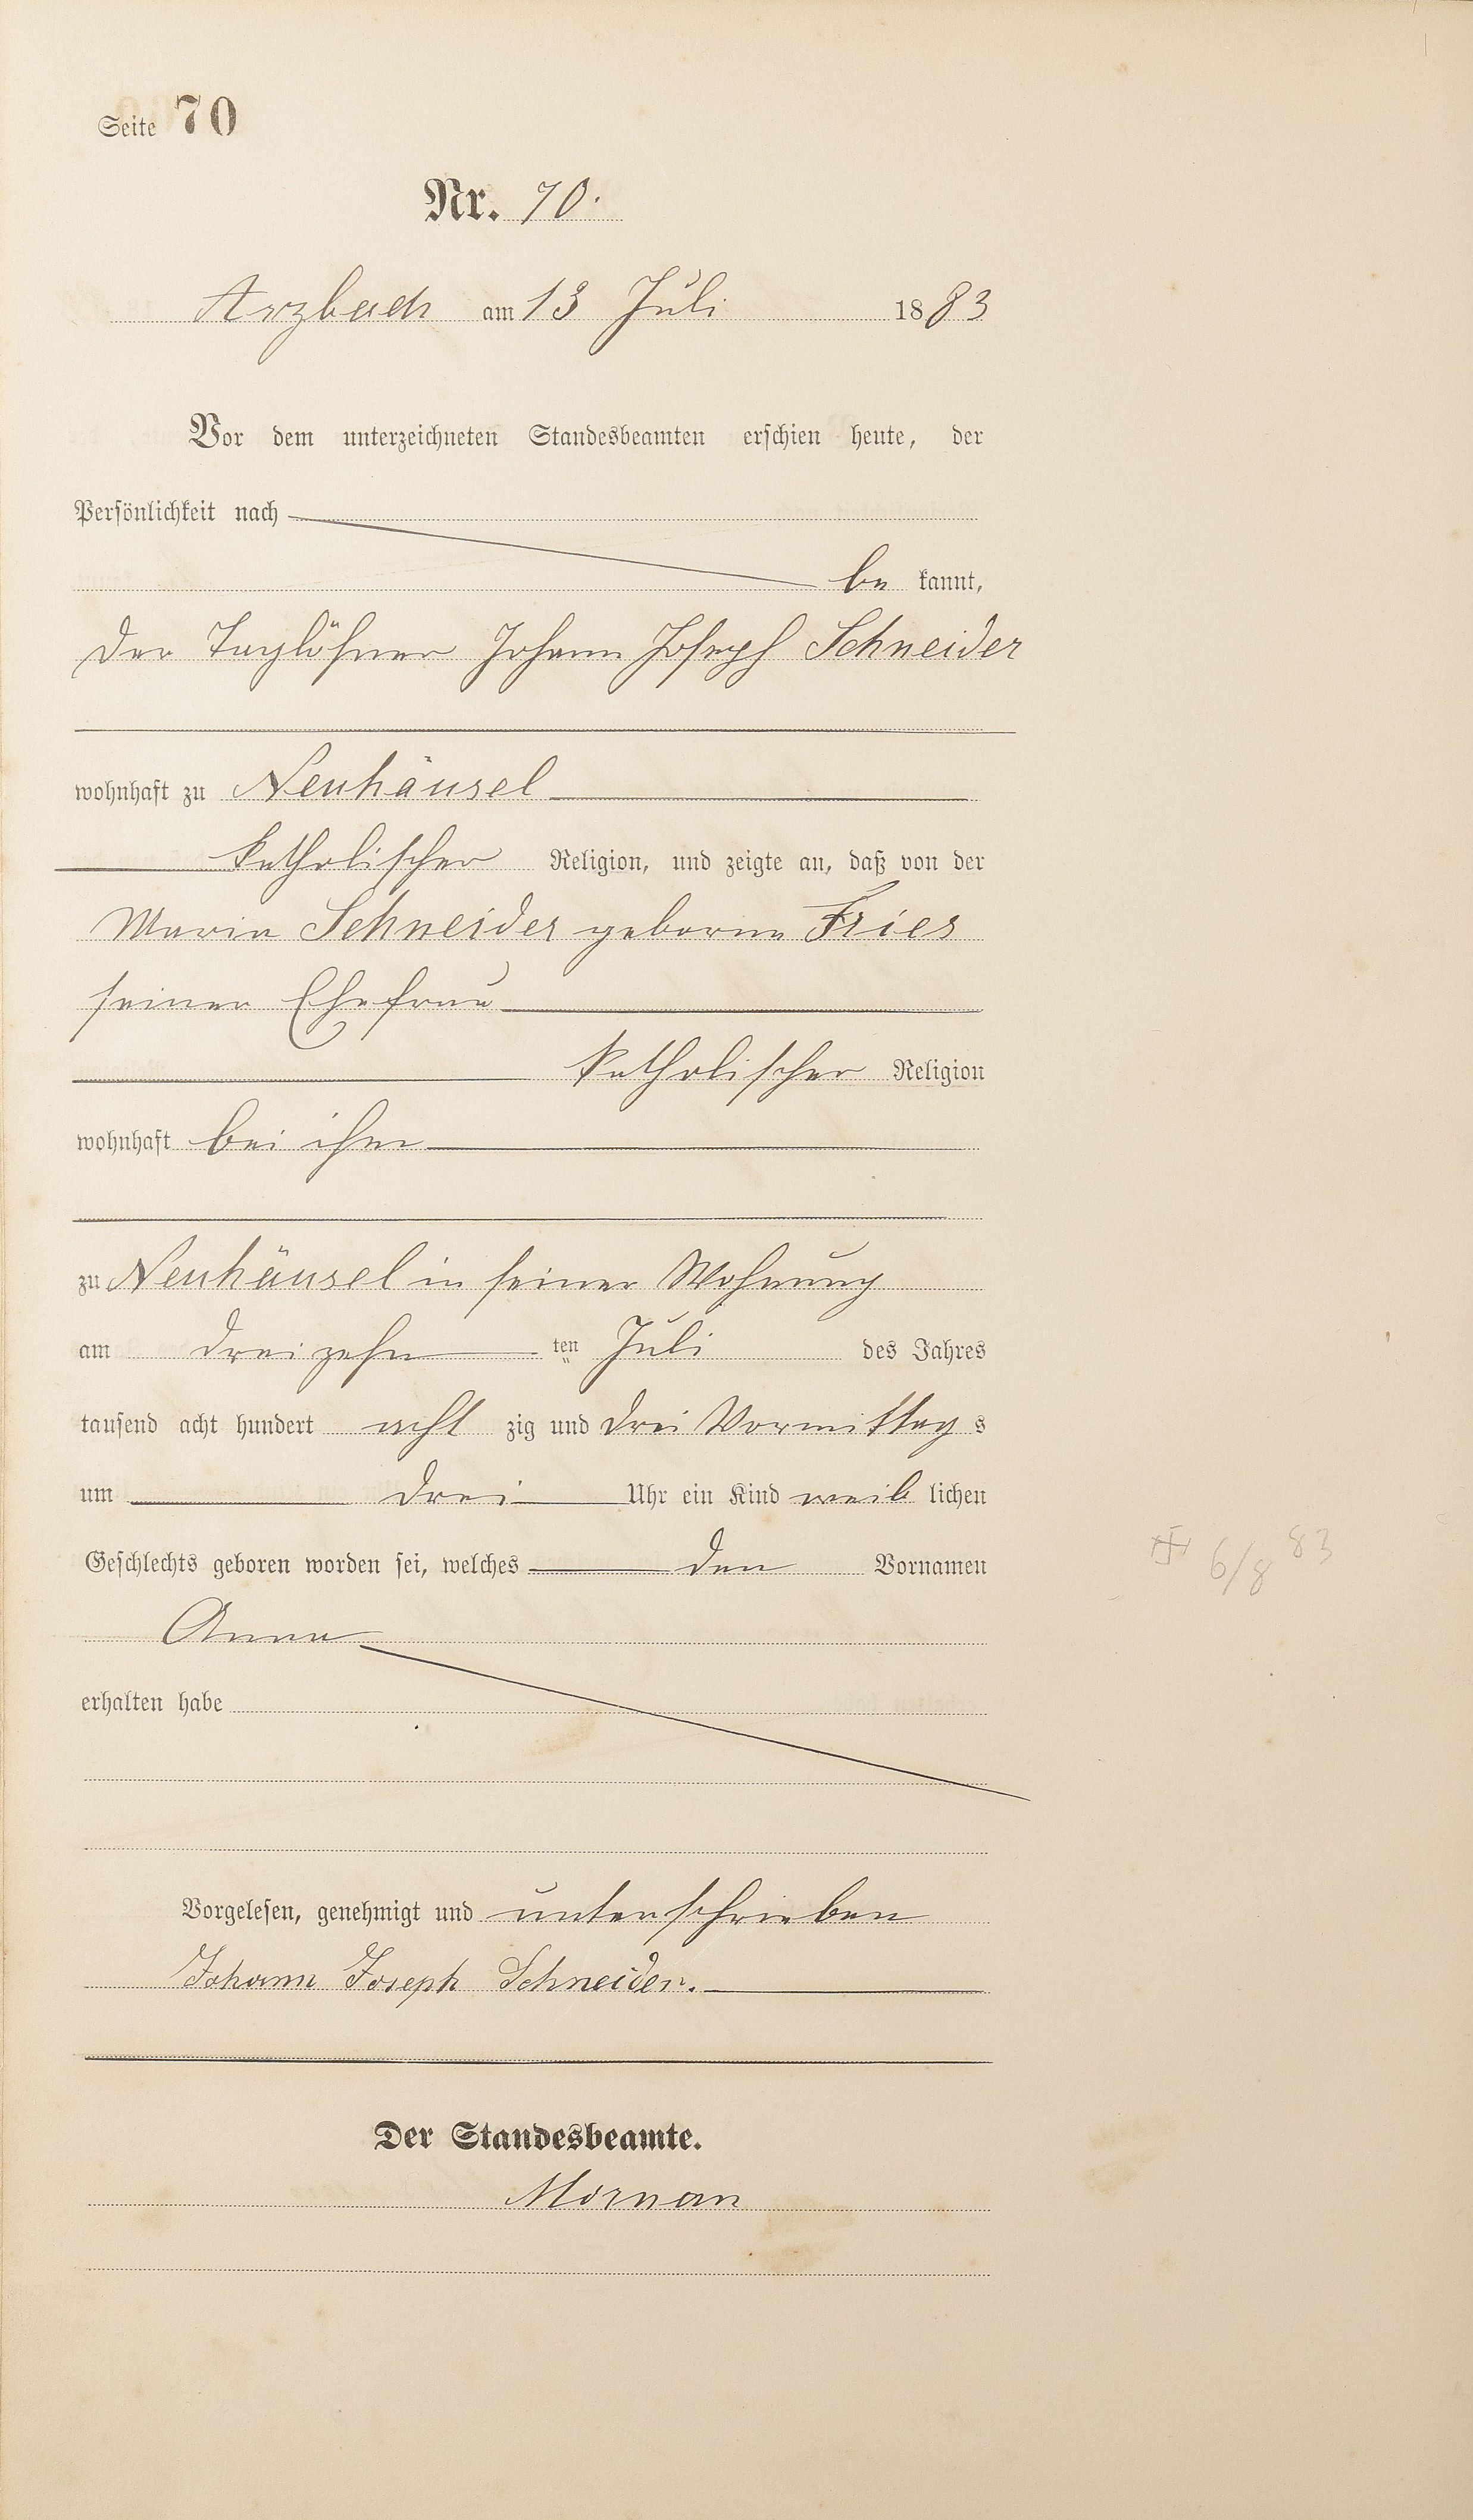 Seite 70
Nr. 70.
Arzbach am 13 Juli 1883
Vor dem unterzeichneten Standesbeamten erschien heute, der
Persönlichkeit nach
be kannt,
der Taglöhner Johann Joseph Schneider
wohnhaft zu Neuhäusel
katholischer Religion, und zeigte an, daß von der
Maria Schneider geborne Fries
seiner Ehefrau
katholischer Religion
wohnhaft bei ihm
zu Neuhäusel in seiner Wohnung
am dreizehn ten Juli des Jahres
tausend acht hundert acht zig und drei Vormittag s
um drei Uhr ein Kind weib lichen
Geschlechts geboren worden sei, welches den Vornamen
+ 6/8 83
Anna
erhalten habe
Vorgelesen, genehmigt und unterschrieben
Johann Joseph Schneider.
Der Standesbeamte.